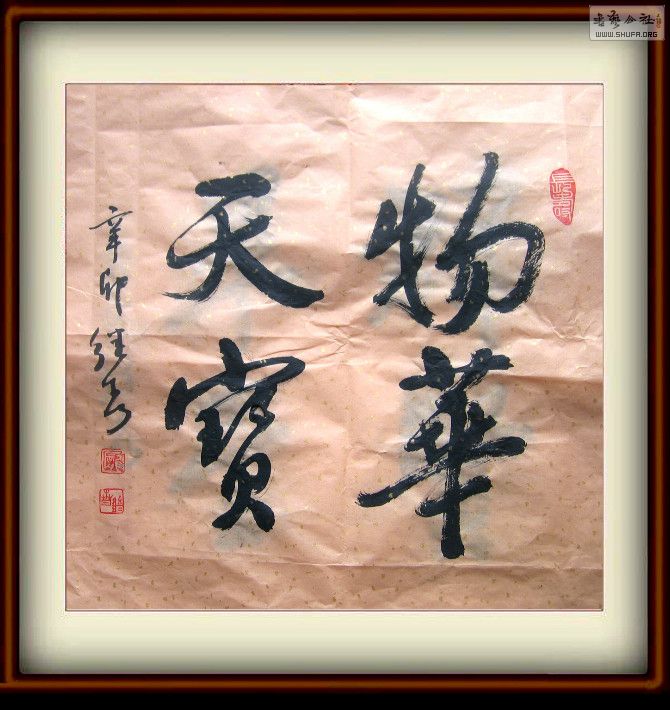 物華
天寶
辛卯
書藝公社
WWW.SHUFA.ORG